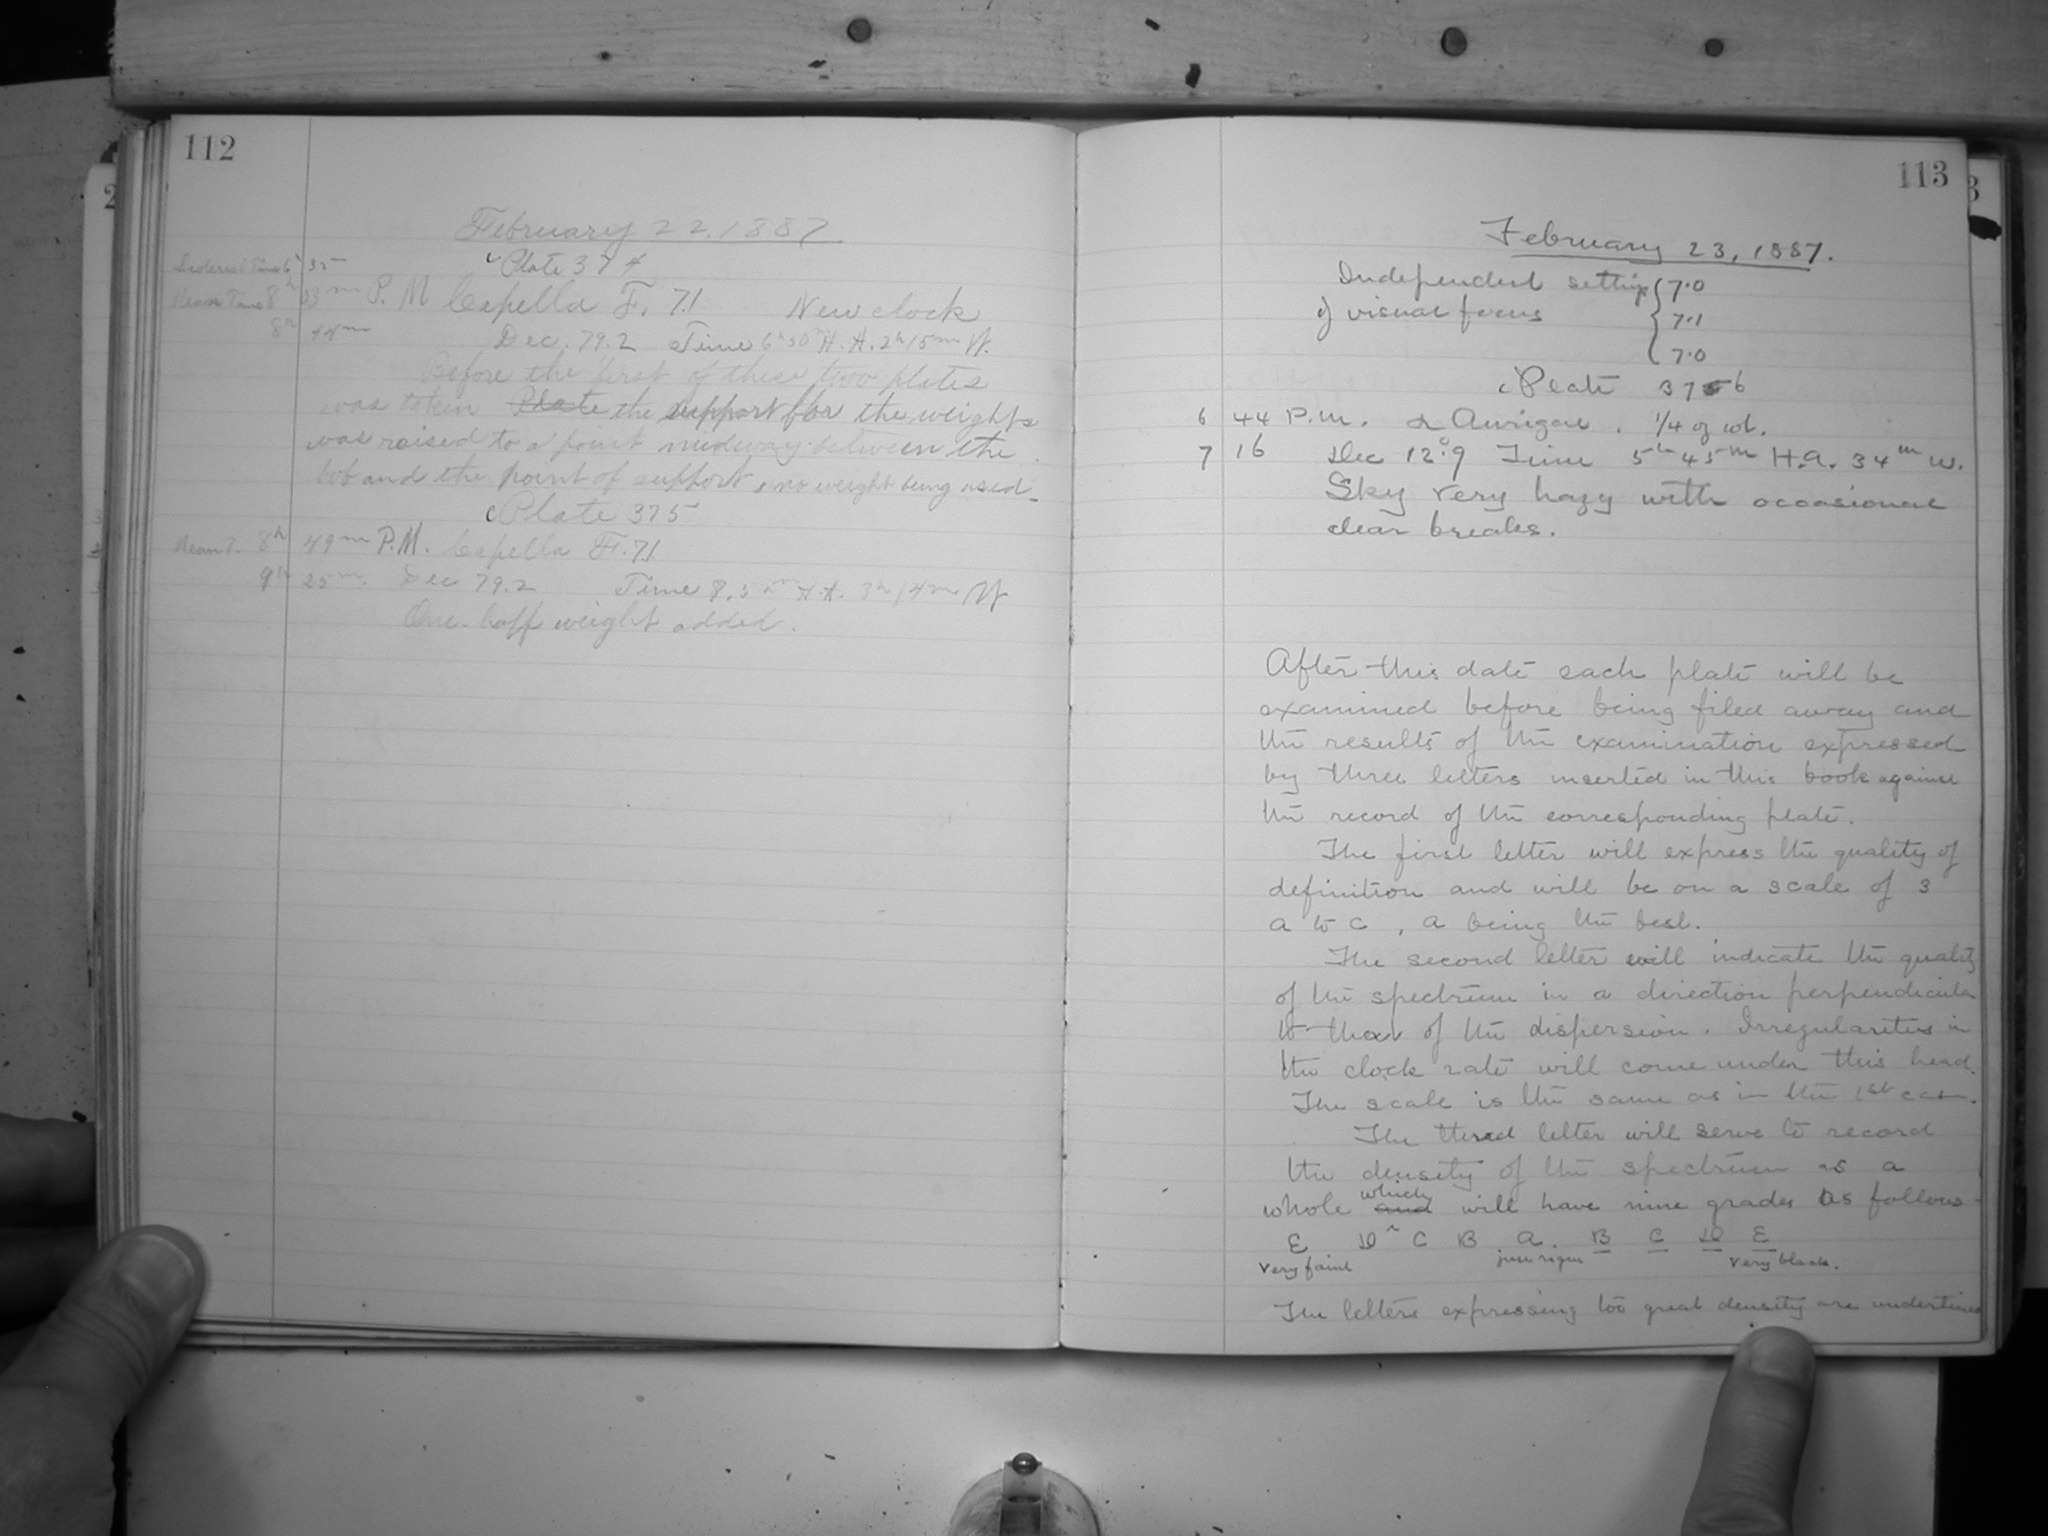 112
February 22, 1887.
Plate 374
Sidereal Time 6h 35m
Mean Time 8h 03m P.M Capella F. 7.1 New clock
8h 44m Dec. 79.2 Time 6h 50m H.A. 2h 15m W.
Before the first of these two plates
was taken Plate the support for the weights
was raised to a point midway between the
bob and the point of support, no weight being used.
Plate 375
Mean T. 8h 49m P.M. Capella F. 7.1
9h 25m. Dec 79.2 Time H.A. 3h 14m W
One-half weight added.
113
3
February 23, 1887.
Independent settings 7.0
of visual focus 7.1
7.0
Plate 376
6 44 P.M. α Aurigae. 1/4 of wt.
7 16 Dec 12°.9 Time 5h 45m H.A. 34m W.
Sky very hazy with occasional
clear breaks.
After this date each plate will be
examined before being filed away and
the results of the examination expressed
by three letters inserted in this book against
the record of the corresponding plate.
The first letter will express the quality of
definition and will be on a scale of 3
a to c, a being the best.
The second letter will indicate the quality
of the spectrum in a direction perpendicular
to that of the dispersion. Irregularities in
the clock rate will come under this head.
The scale is the same as in the 1st case.
The third letter will serve to record
the density of the spectrum as a
whole and which will have nine grades as follows
E D C B A. B C D E
very faint just right very black.
The letters expressing too great density are underlined